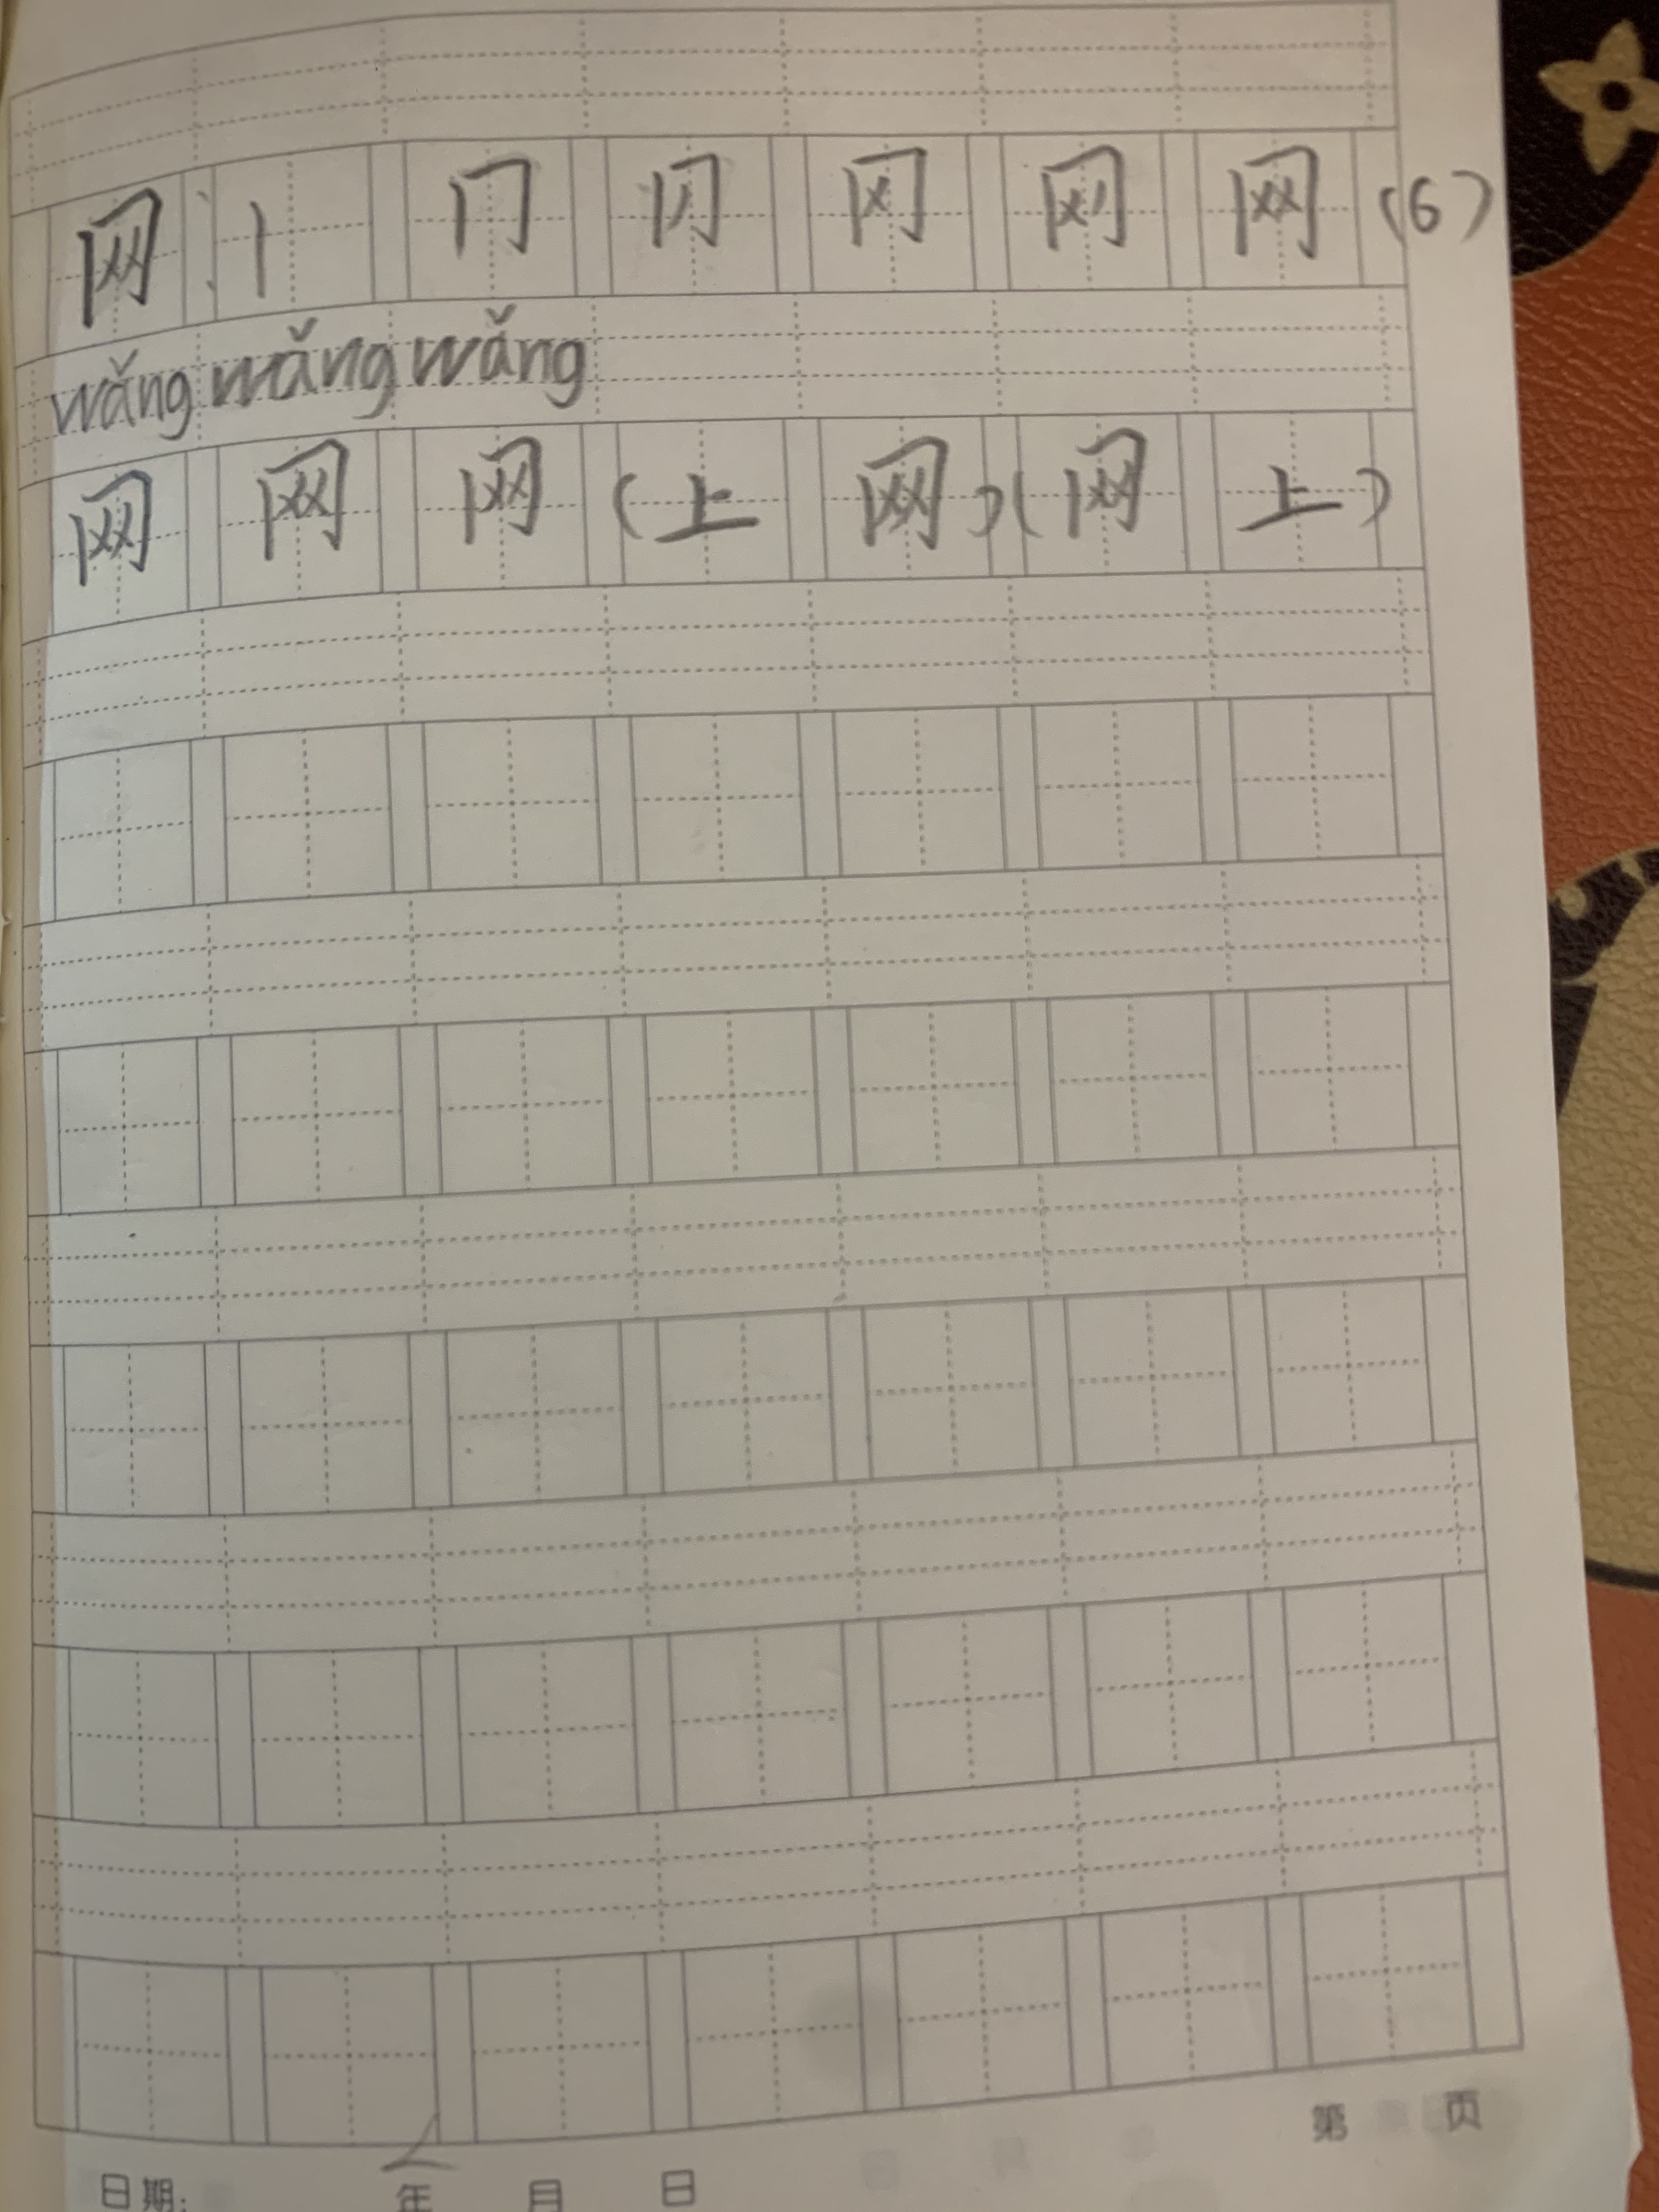 网:丨冂 𠔿 冈 网 (6)
wǎng wǎng wǎng
网 网 网 (上 网)(网 上)
第 页
日期: 年 月 日